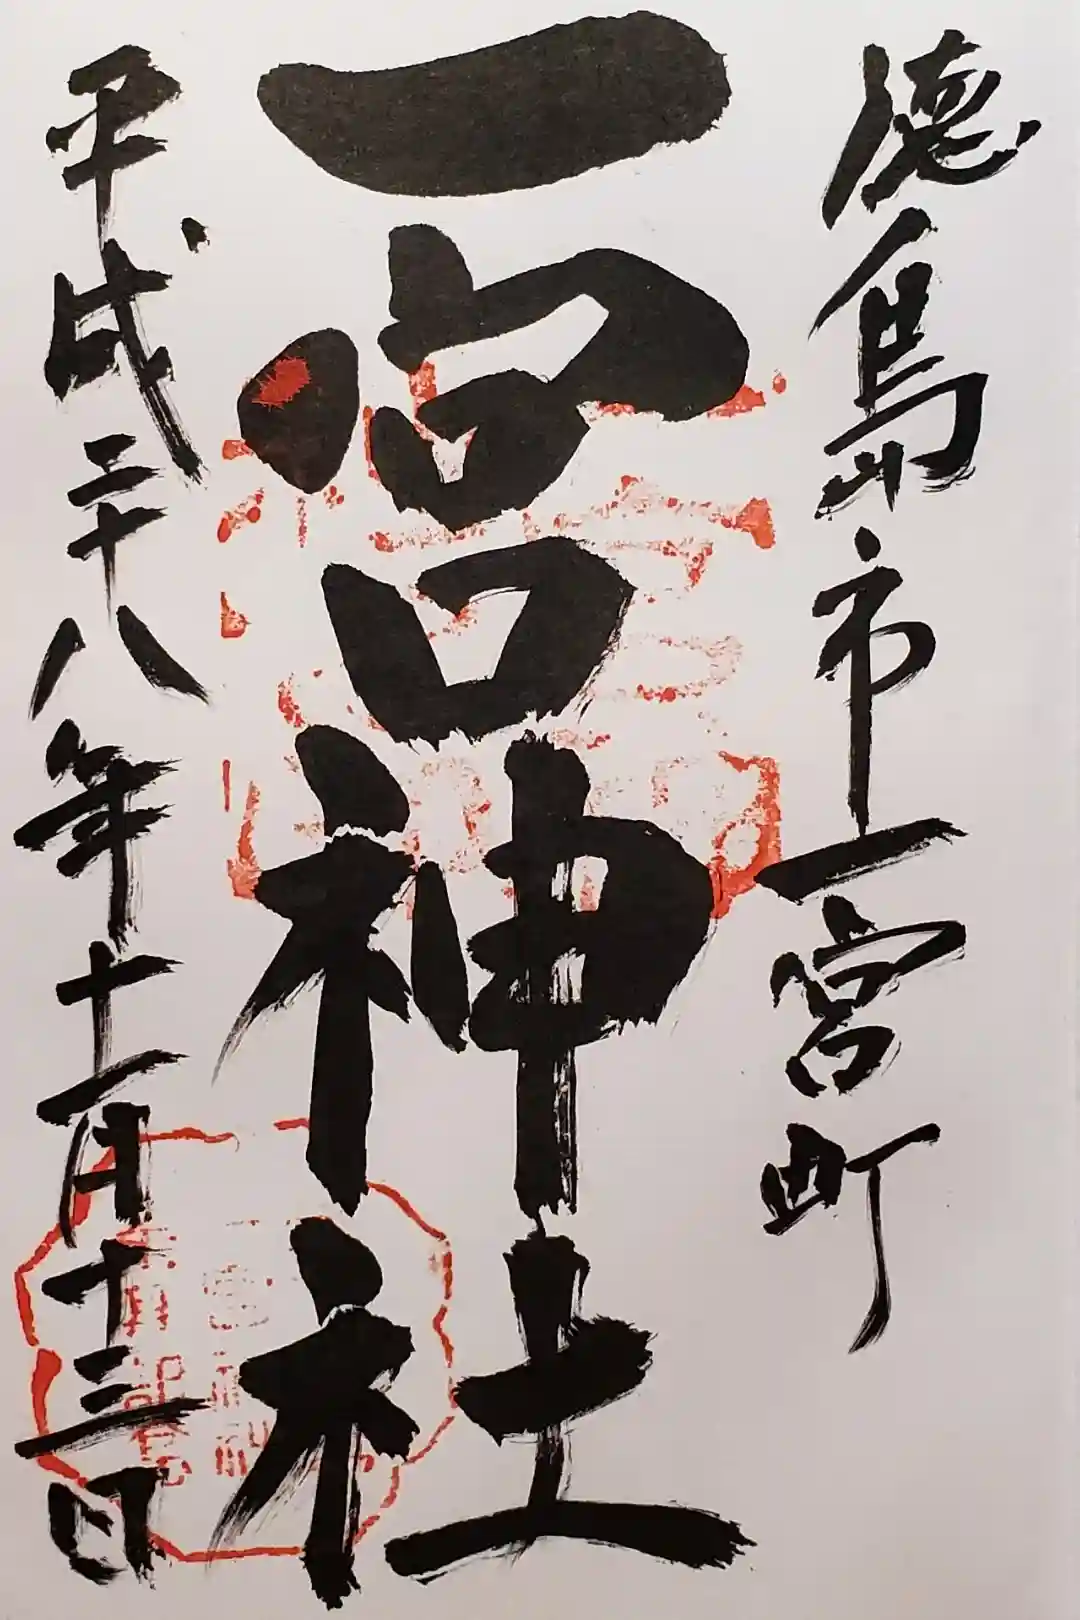 徳島市一宮町
一宮神社
平成二十八年十一月十三日